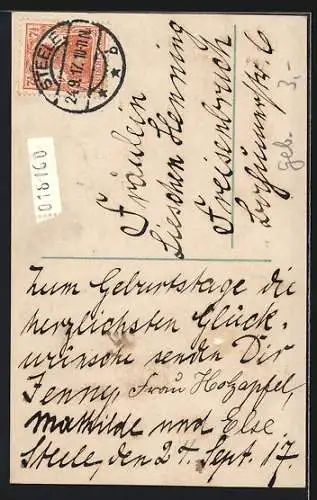 STEELE
24.9.17.10-11V.
b
7½
Fräulein
Lieschen Henning
Freisenbruch
6
geb. 3,-
018160
Zum Geburtstage die
herzlichsten Glück-
wünsche senden Dir
Jenny, Frau Holzapfel,
Mathilde und Else
Steele, den 24. Sept. 17.